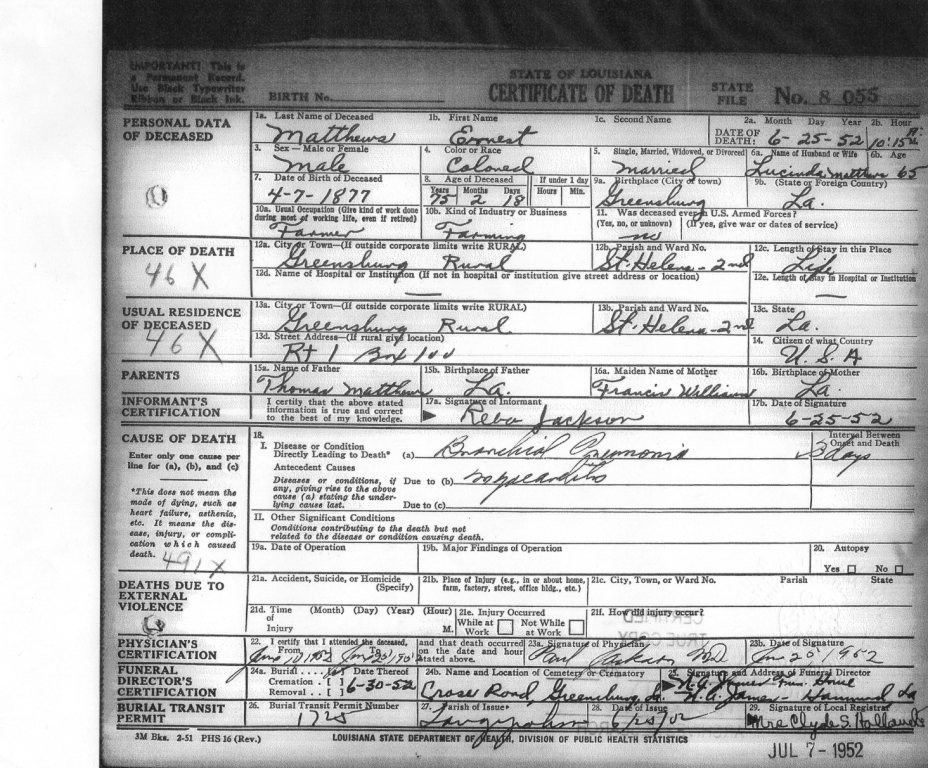 IMPORTANT! This is
a Permanent Record.
Use Black Typewriter
Ribbon or Black Ink.
BIRTH No.
STATE OF LOUISIANA
CERTIFICATE OF DEATH
STATE
FILE No. 8 055
PERSONAL DATA
OF DECEASED
1a. Last Name of Deceased 1b. First Name 1c. Second Name 2a. Month Day Year 2b. Hour
Matthews Ernest DATE OF DEATH: 6-25-52 10:15
3. Sex—Male or Female 4. Color or Race 5. Single, Married, Widowed, or Divorced 6a. Name of Husband or Wife 6b. Age
Male Colored Married Lucinda Matthews 65
7. Date of Birth of Deceased 8. Age of Deceased If under 1 day 9a. Birthplace (City or town) 9b. (State or Foreign Country)
4-7-1877 Years Months Days Hours Min. Greensburg La.
75 2 18
10a. Usual Occupation (Give kind of work done 10b. Kind of Industry or Business 11. Was deceased ever in U.S. Armed Forces?
during most of working life, even if retired) (Yes, no, or unknown) (If yes, give war or dates of service)
Farmer Farming no
PLACE OF DEATH
46 X
12a. City or Town—(If outside corporate limits write RURAL) 12b. Parish and Ward No. 12c. Length of Stay in this Place
Greensburg Rural St. Helena-2nd Life
12d. Name of Hospital or Institution (If not in hospital or institution give street address or location) 12e. Length of Stay in Hospital or Institution
USUAL RESIDENCE
OF DECEASED
46 X
13a. City or Town—(If outside corporate limits write RURAL) 13b. Parish and Ward No. 13c. State
Greensburg Rural St. Helena-2nd La.
13d. Street Address—(If rural give location) 14. Citizen of what Country
Rt 1 Box 100 U.S.A
PARENTS
15a. Name of Father 15b. Birthplace of Father 16a. Maiden Name of Mother 16b. Birthplace of Mother
Thomas Matthews La. Francis Williams La.
INFORMANT'S
CERTIFICATION
I certify that the above stated
information is true and correct
to the best of my knowledge.
17a. Signature of Informant 17b. Date of Signature
Reba Jackson 6-25-52
CAUSE OF DEATH
Enter only one cause per
line for (a), (b), and (c)
*This does not mean the
mode of dying, such as
heart failure, asthenia,
etc. It means the dis-
ease, injury, or compli-
cation which caused
death.
491X
18.
I. Disease or Condition
Directly Leading to Death* (a) Bronchial Pneumonia
Interval Between
Onset and Death
3 days
Antecedent Causes
Diseases or conditions, if
any, giving rise to the above
cause (a) stating the under-
lying cause last.
Due to (b) Myocarditis
Due to (c)
II. Other Significant Conditions
Conditions contributing to the death but not
related to the disease or condition causing death.
19a. Date of Operation 19b. Major Findings of Operation 20. Autopsy
Yes No
DEATHS DUE TO
EXTERNAL
VIOLENCE
21a. Accident, Suicide, or Homicide 21b. Place of Injury (e.g., in or about home, 21c. City, Town, or Ward No. Parish State
(Specify) farm, factory, street, office bldg., etc.)
21d. Time (Month) (Day) (Year) (Hour) 21e. Injury Occurred 21f. How did injury occur?
of
Injury M. While at Work Not While at Work
PHYSICIAN'S
CERTIFICATION
22. I certify that I attended the deceased, and that death occurred 23a. Signature of Physician 23b. Date of Signature
From To on the date and hour
stated above.
Paul Jackson MD
FUNERAL
DIRECTOR'S
CERTIFICATION
24a. Burial Date Thereof 24b. Name and Location of Cemetery or Crematory 25. Signature and Address of Funeral Director
Cremation [ ] 6-30-52
Removal [ ] Cross Road, Greensburg, La. Hammond La
BURIAL TRANSIT
PERMIT
26. Burial Transit Permit Number 27. Parish of Issue 28. Date of Issue 29. Signature of Local Registrar
1725 Tangipahoa 6/25/52 Mrs Clyde S. Holland
3M Bks. 2-51 PHS 16 (Rev.) LOUISIANA STATE DEPARTMENT OF HEALTH, DIVISION OF PUBLIC HEALTH STATISTICS
JUL 7 - 1952